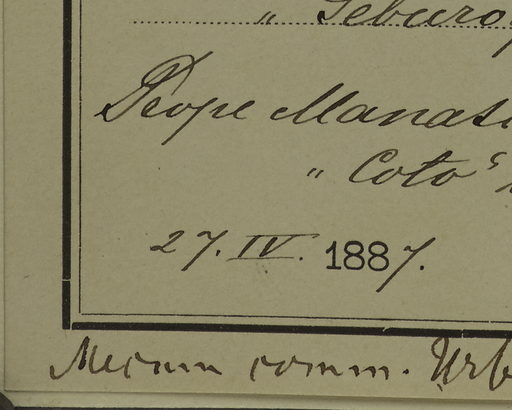 " Geburo
Prope Manas
" Coto
27. IV. 1887.
Mecum comm. Urb